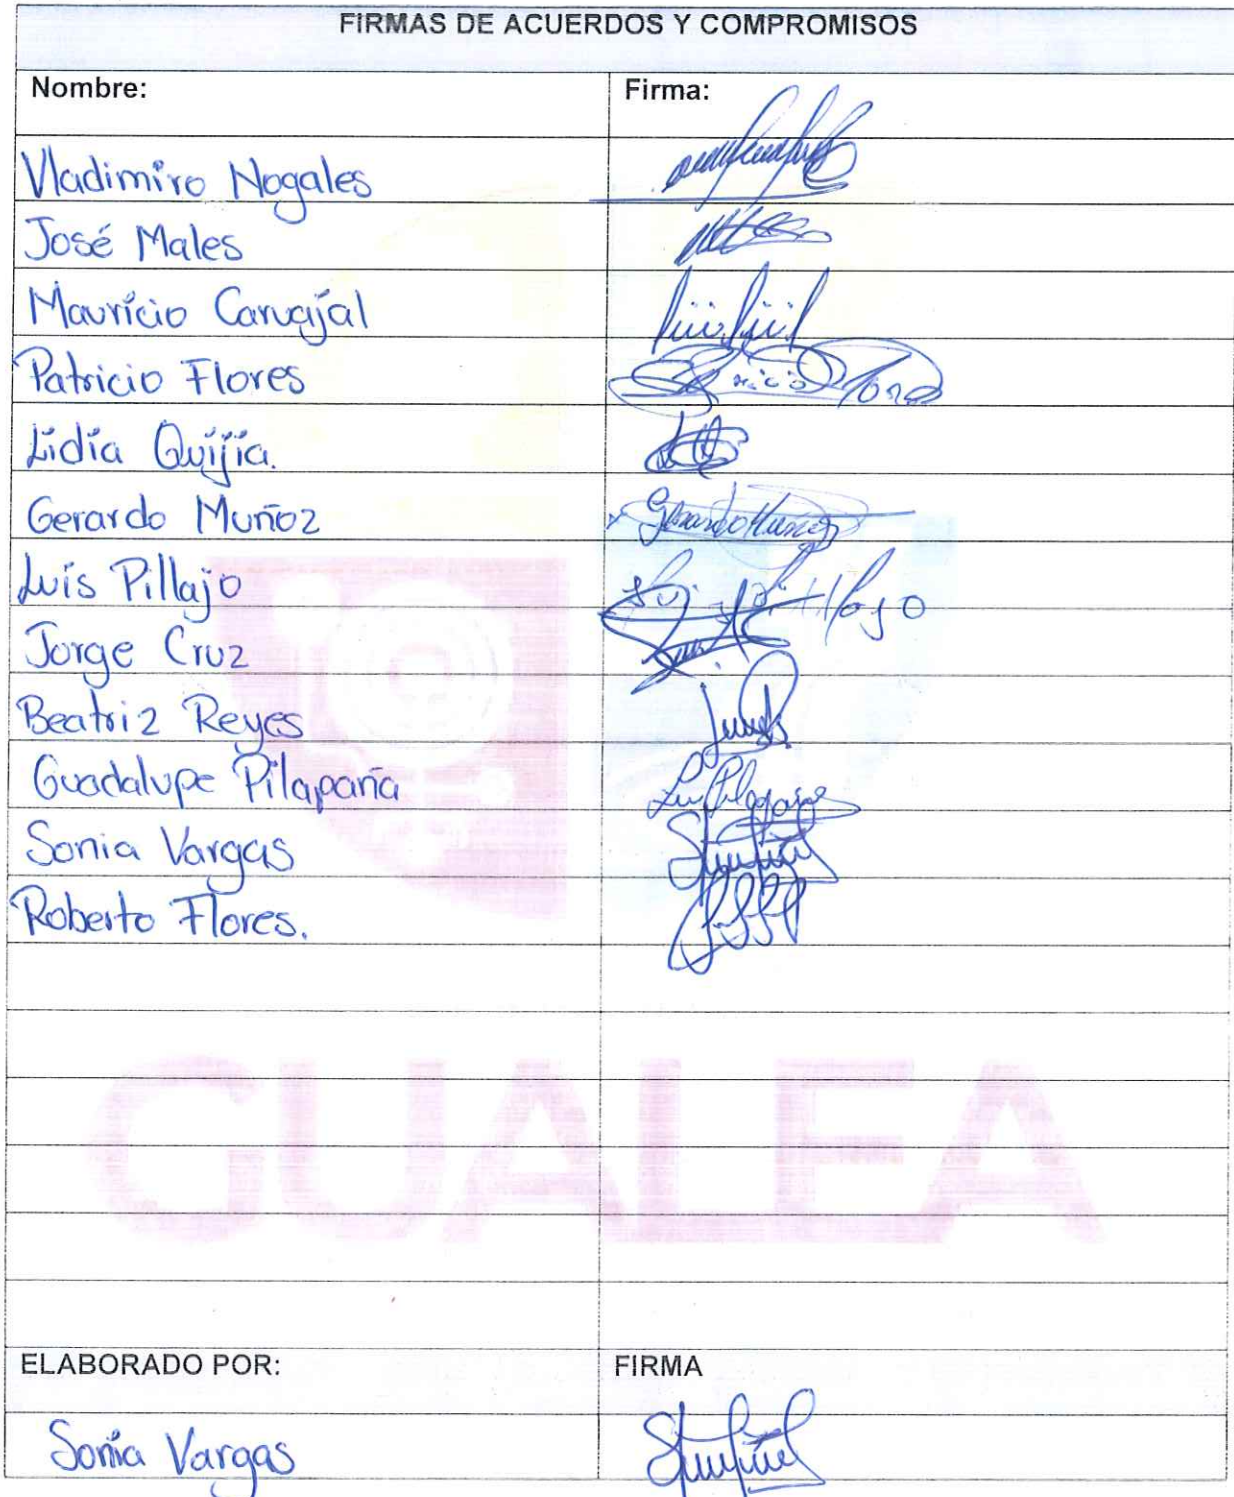 FIRMAS DE ACUERDOS Y COMPROMISOS
Nombre: Firma:
Vladimiro Nogales
José Males
Mauricio Carvajal
Patricio Flores
Lidia Quijia.
Gerardo Muñoz Gerardo Muñoz
Luis Pillajo
Jorge Cruz
Beatriz Reyes
Guadalupe Pilapaña
Sonia Vargas
Roberto Flores.
GUALEA
ELABORADO POR: FIRMA
Sonia Vargas